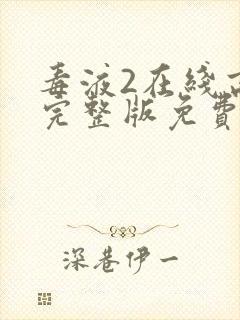 毒液2在线
完整版免费
深巷伊一